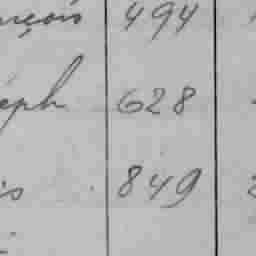 nçois 494
eph 628
is 849